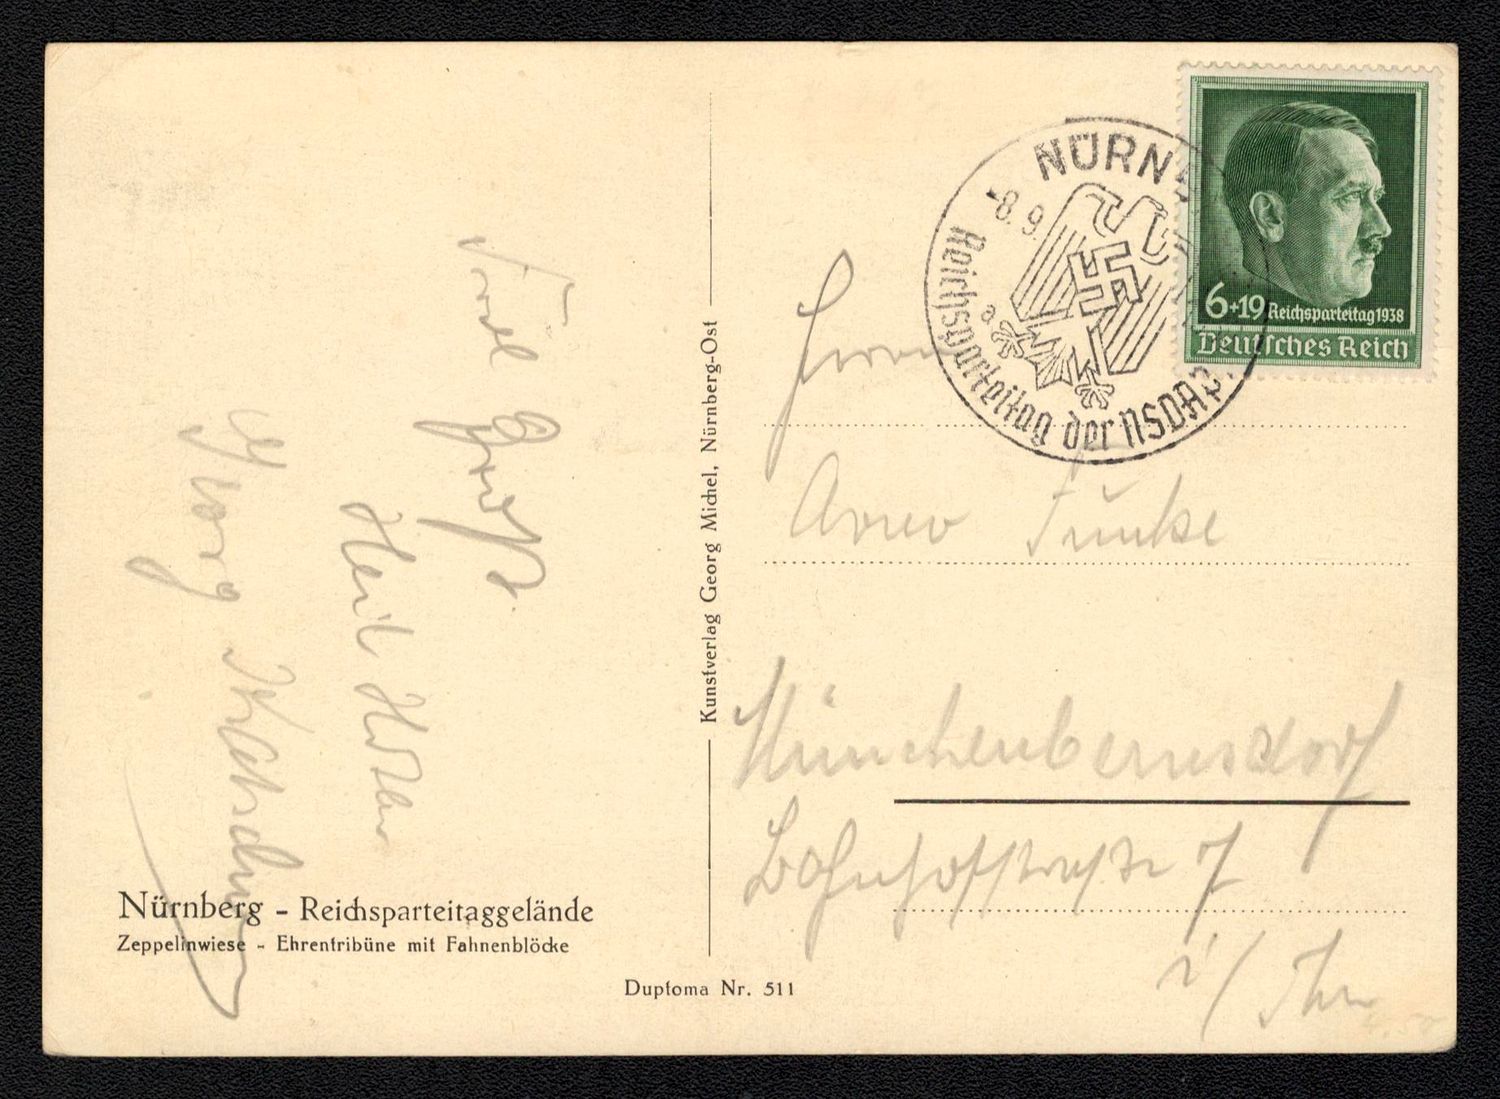 Viele
Grüße
Heil Hitler
Georg
Nürnberg - Reichsparteitaggelände
Zeppelinwiese - Ehrentribüne mit Fahnenblöcke
Kunstverlag Georg Michel, Nürnberg-Ost
Duptoma Nr. 511
NÜRN
-8. 9.
a
Reichsparteitag der NSDAP.
6+19 Reichsparteitag 1938
Deutsches Reich
Herrn
Arno Funke
Münchenbernsdorf
Bahnhofstraße 7
i/Thür